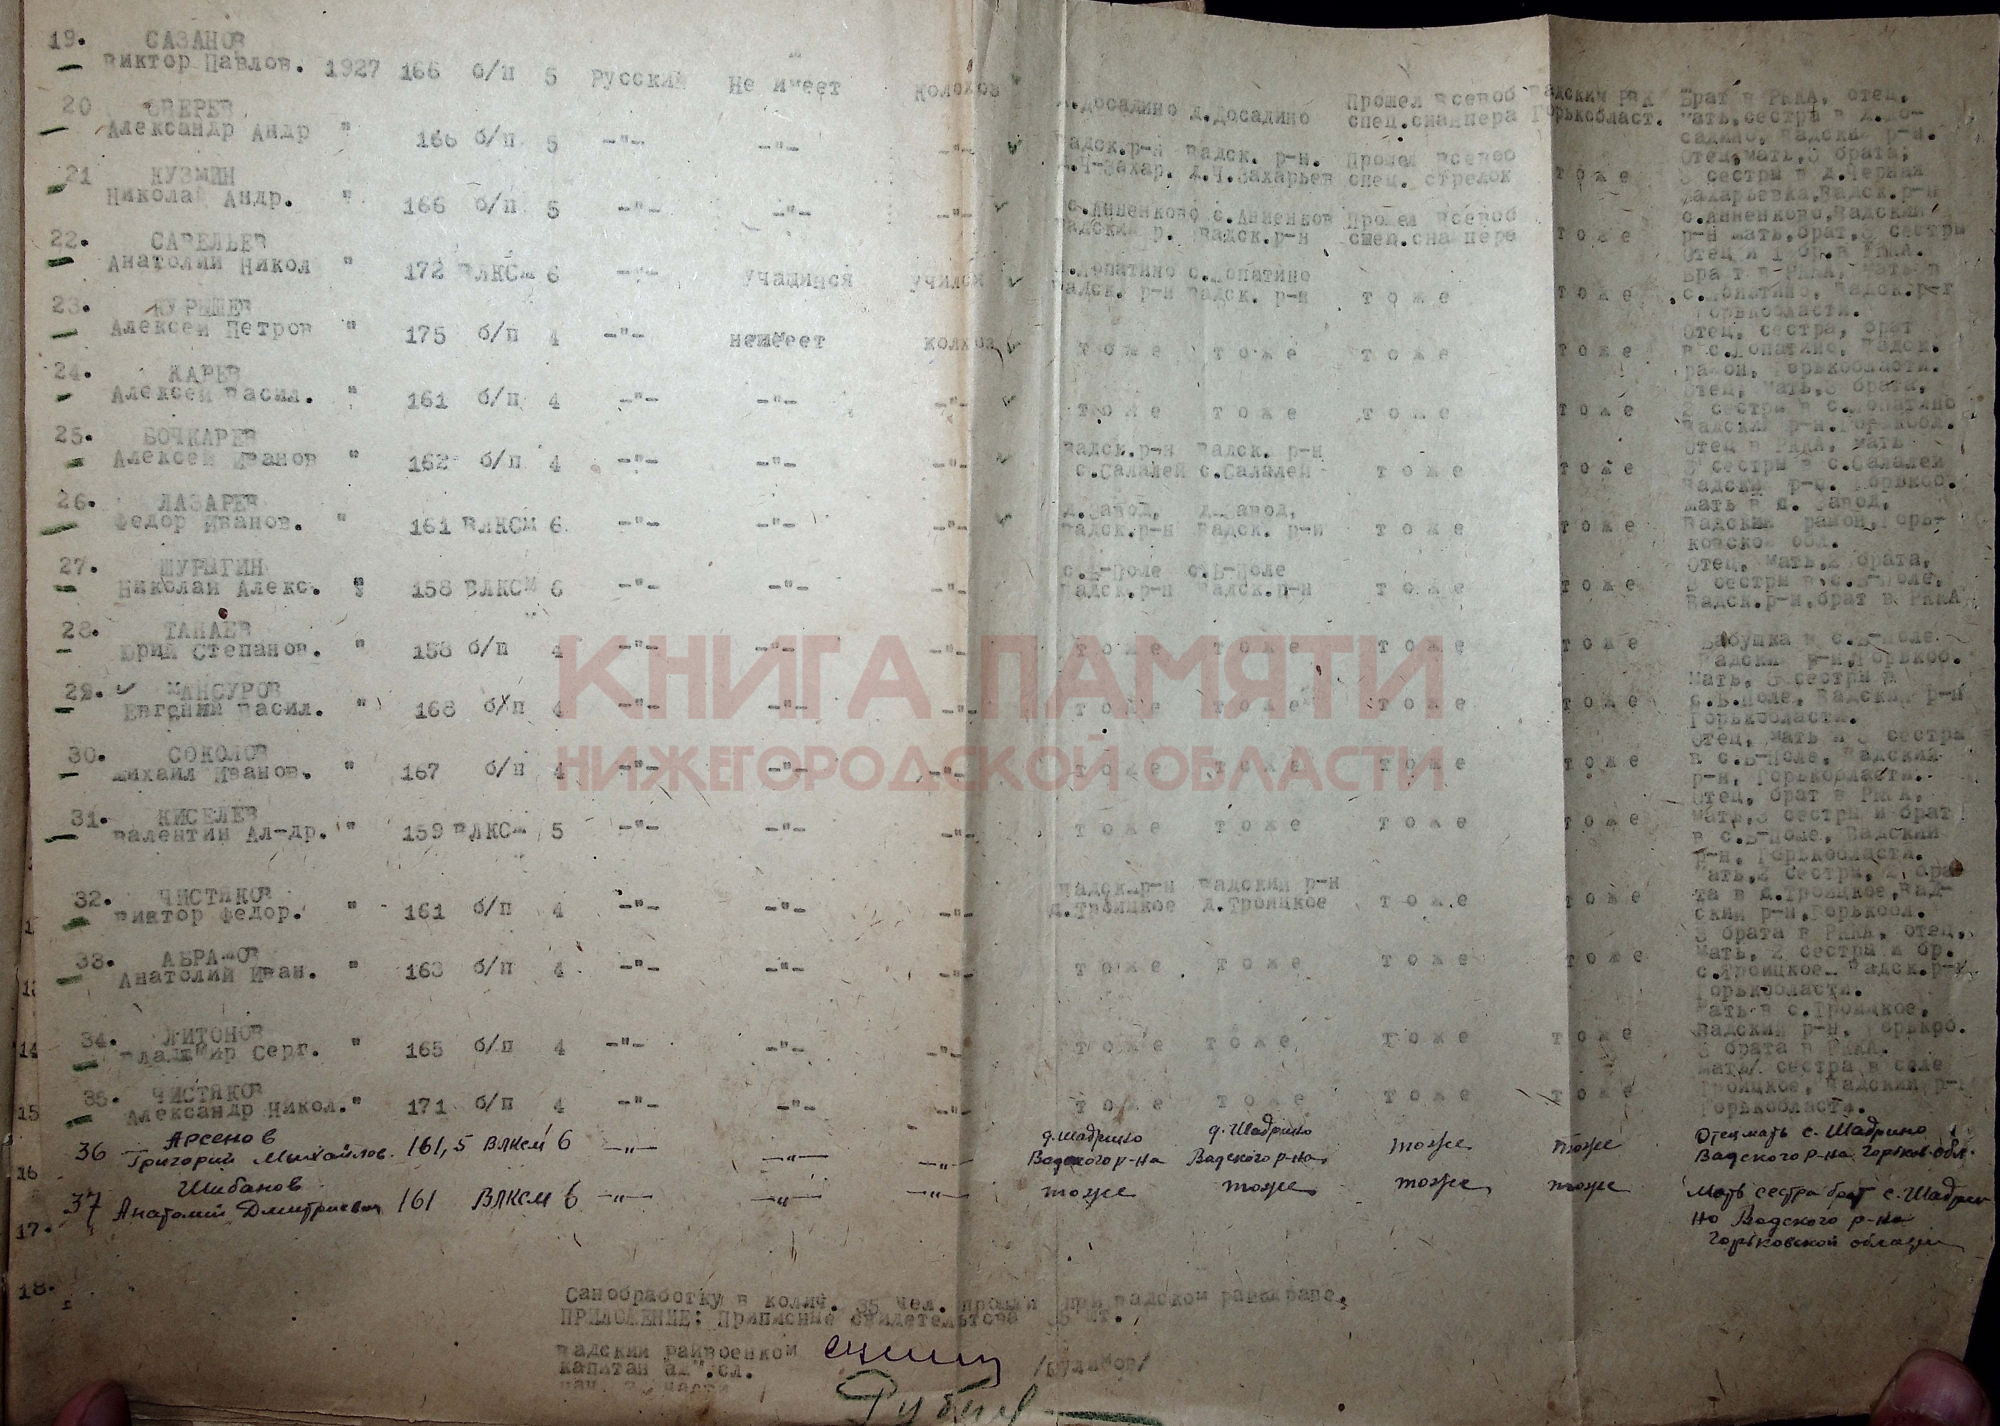 19. САЗАНОВ
Виктор Павлов. 1927 166 б/п 5 Русский Не имеет Колохоз
20 ЗВЕРЕВ
Александр Андр " 166 б/п 5 -"- -"- -"- д.Досадино д.Досадино Прошел всевоб спец.снайпера Вадский РВК Горькобласт. Брат в РККА, отец, мать,сестра в д.Досадино, Вадский р-н.
21 КУЗМИН
Николай Андр. " 166 б/п 5 -"- -"- -"- Вадск.р-н Вадск. р-н. Прошел всевоб спец. стрелок т о ж е Отец,мать,3 брата, 3 сестры в д.Черная Захарьевка,Вадск.р-н
22. САВЕЛЬЕВ
Анатолий Никол " 172 ВЛКСМ 6 -"- учащийся учился с.Анненково с.Анненков Прошел всевоб т о ж е с.Анненково,Вадский р-н мать,брат,3 сестры
23. КУРЫШЕВ
Алексей Петров " 175 б/п 4 -"- неимеет колхоз с.Лопатино с.Лопатино Вадск. р-н Вадск. р-н т о ж е т о ж е Брат в РККА, мать в с.Лопатино, Вадск.р-н Горькобласти.
24. КАРЕВ
Алексей Васил. " 161 б/п 4 -"- -"- -"- т о ж е т о ж е т о ж е т о ж е Отец, сестра, брат в с.Лопатино, Вадск. район, Горькобласти.
25. БОЧКАРЕВ
Алексей Иванов " 162 б/п 4 -"- -"- -"- т о ж е т о ж е т о ж е т о ж е Отец, мать,3 брата, 2 сестры в с.Лопатино Вадский р-н.Горькобл.
26. ЛАЗАРЕВ
Федор Иванов. " 161 ВЛКСМ 6 -"- -"- -"- Вадск.р-н Вадск. р-н с.Салалей с.Салалей т о ж е т о ж е Отец в РККА, мать 3 сестры в с.Салалей
27. ШУРЫГИН
Николай Алекс. " 158 ВЛКСМ 6 -"- -"- д.Завод, д.Завод, Вадск.р-н Вадск. р-н т о ж е т о ж е Мать в д. Завод, Вадский район,Горьковской обл.
28. ТАНАЕВ
Юрий Степанов. " 158 б/п 4 -"- -"- -"- с.В-Поле с.В-Поле Вадск.р-н Вадск.р-н т о ж е т о ж е Отец, мать,2 брата, 3 сестры в с.В-Поле, Вадск.р-н,брат в РККА
29. МАНСУРОВ
Евгений Васил. " 168 б/п 4 -"- -"- -"- т о ж е т о ж е т о ж е т о ж е Бабушка в с.В-Поле Вадский р-н,Горькоб.
30. СОКОЛОВ
Михаил Иванов. " 167 б/п 4 -"- -"- -"- т о ж е т о ж е т о ж е т о ж е Мать, 3 сестры в с.В.Поле, Вадский р-н Горькобласти.
31. КИСЕЛЕВ
Валентин Ал-др. " 159 ВЛКСМ 5 -"- -"- -"- т о ж е т о ж е т о ж е т о ж е Отец, мать и 3 сестры в с.В-Поле, Вадский р-н, Горькобласти.
Отец, брат в РККА, мать,3 сестры и брат в с.В-Поле, Вадский р-н, Горькобласти.
32. ЧИСТЯКОВ
Виктор Федор. " 161 б/п 4 -"- -"- -"- Вадск.р-н Вадский р-н д.Троицкое д.Троицкое т о ж е т о ж е Мать,2 сестры, 2 брата в д.Троицкое,Вадский р-н,Горькобл.
33. АБРАМОВ
Анатолий Иван. " 163 б/п 4 -"- -"- -"- т о ж е т о ж е т о ж е т о ж е 3 брата в РККА, отец, мать, 2 сестры и бр. с.Троицкое Вадск.р-н, Горькобласти.
34. ЛИТОНОВ
Владимир Серг. " 165 б/п 4 -"- -"- т о ж е т о ж е т о ж е т о ж е Мать в с.Троицкое, Вадский р-н, Горькоб. 3 брата в РККА.
35. ЧИСТЯКОВ
Александр Никол." 171 б/п 4 -"- -"- -"- т о ж е т о ж е т о ж е т о ж е Мать, сестра в селе Троицкое, Вадский р-н Горькобласти.
36 Арсенов
Григорий Михайлов. 161,5 ВЛКСМ 6 -"- -"- -"- д.Шадрино Вадского р-на д.Шадрино Вадского р-на тоже тоже Отец мать с. Шадрино Вадского р-на Горьков. обл.
37 Шибанов
Анатолий Дмитриевич 161 ВЛКСМ 6 -"- -"- -"- тоже тоже тоже тоже Мать сестра брат с. Шадрино Вадского р-на Горьковской области
14
15
16
17.
18.
КНИГА ПАМЯТИ
НИЖЕГОРОДСКОЙ ОБЛАСТИ
Санобработку в колич. 35 чел. прошли при Вадском
ПРИЛОЖЕНИЕ: Приписные свидетельства
Вадский райвоенком
капитан